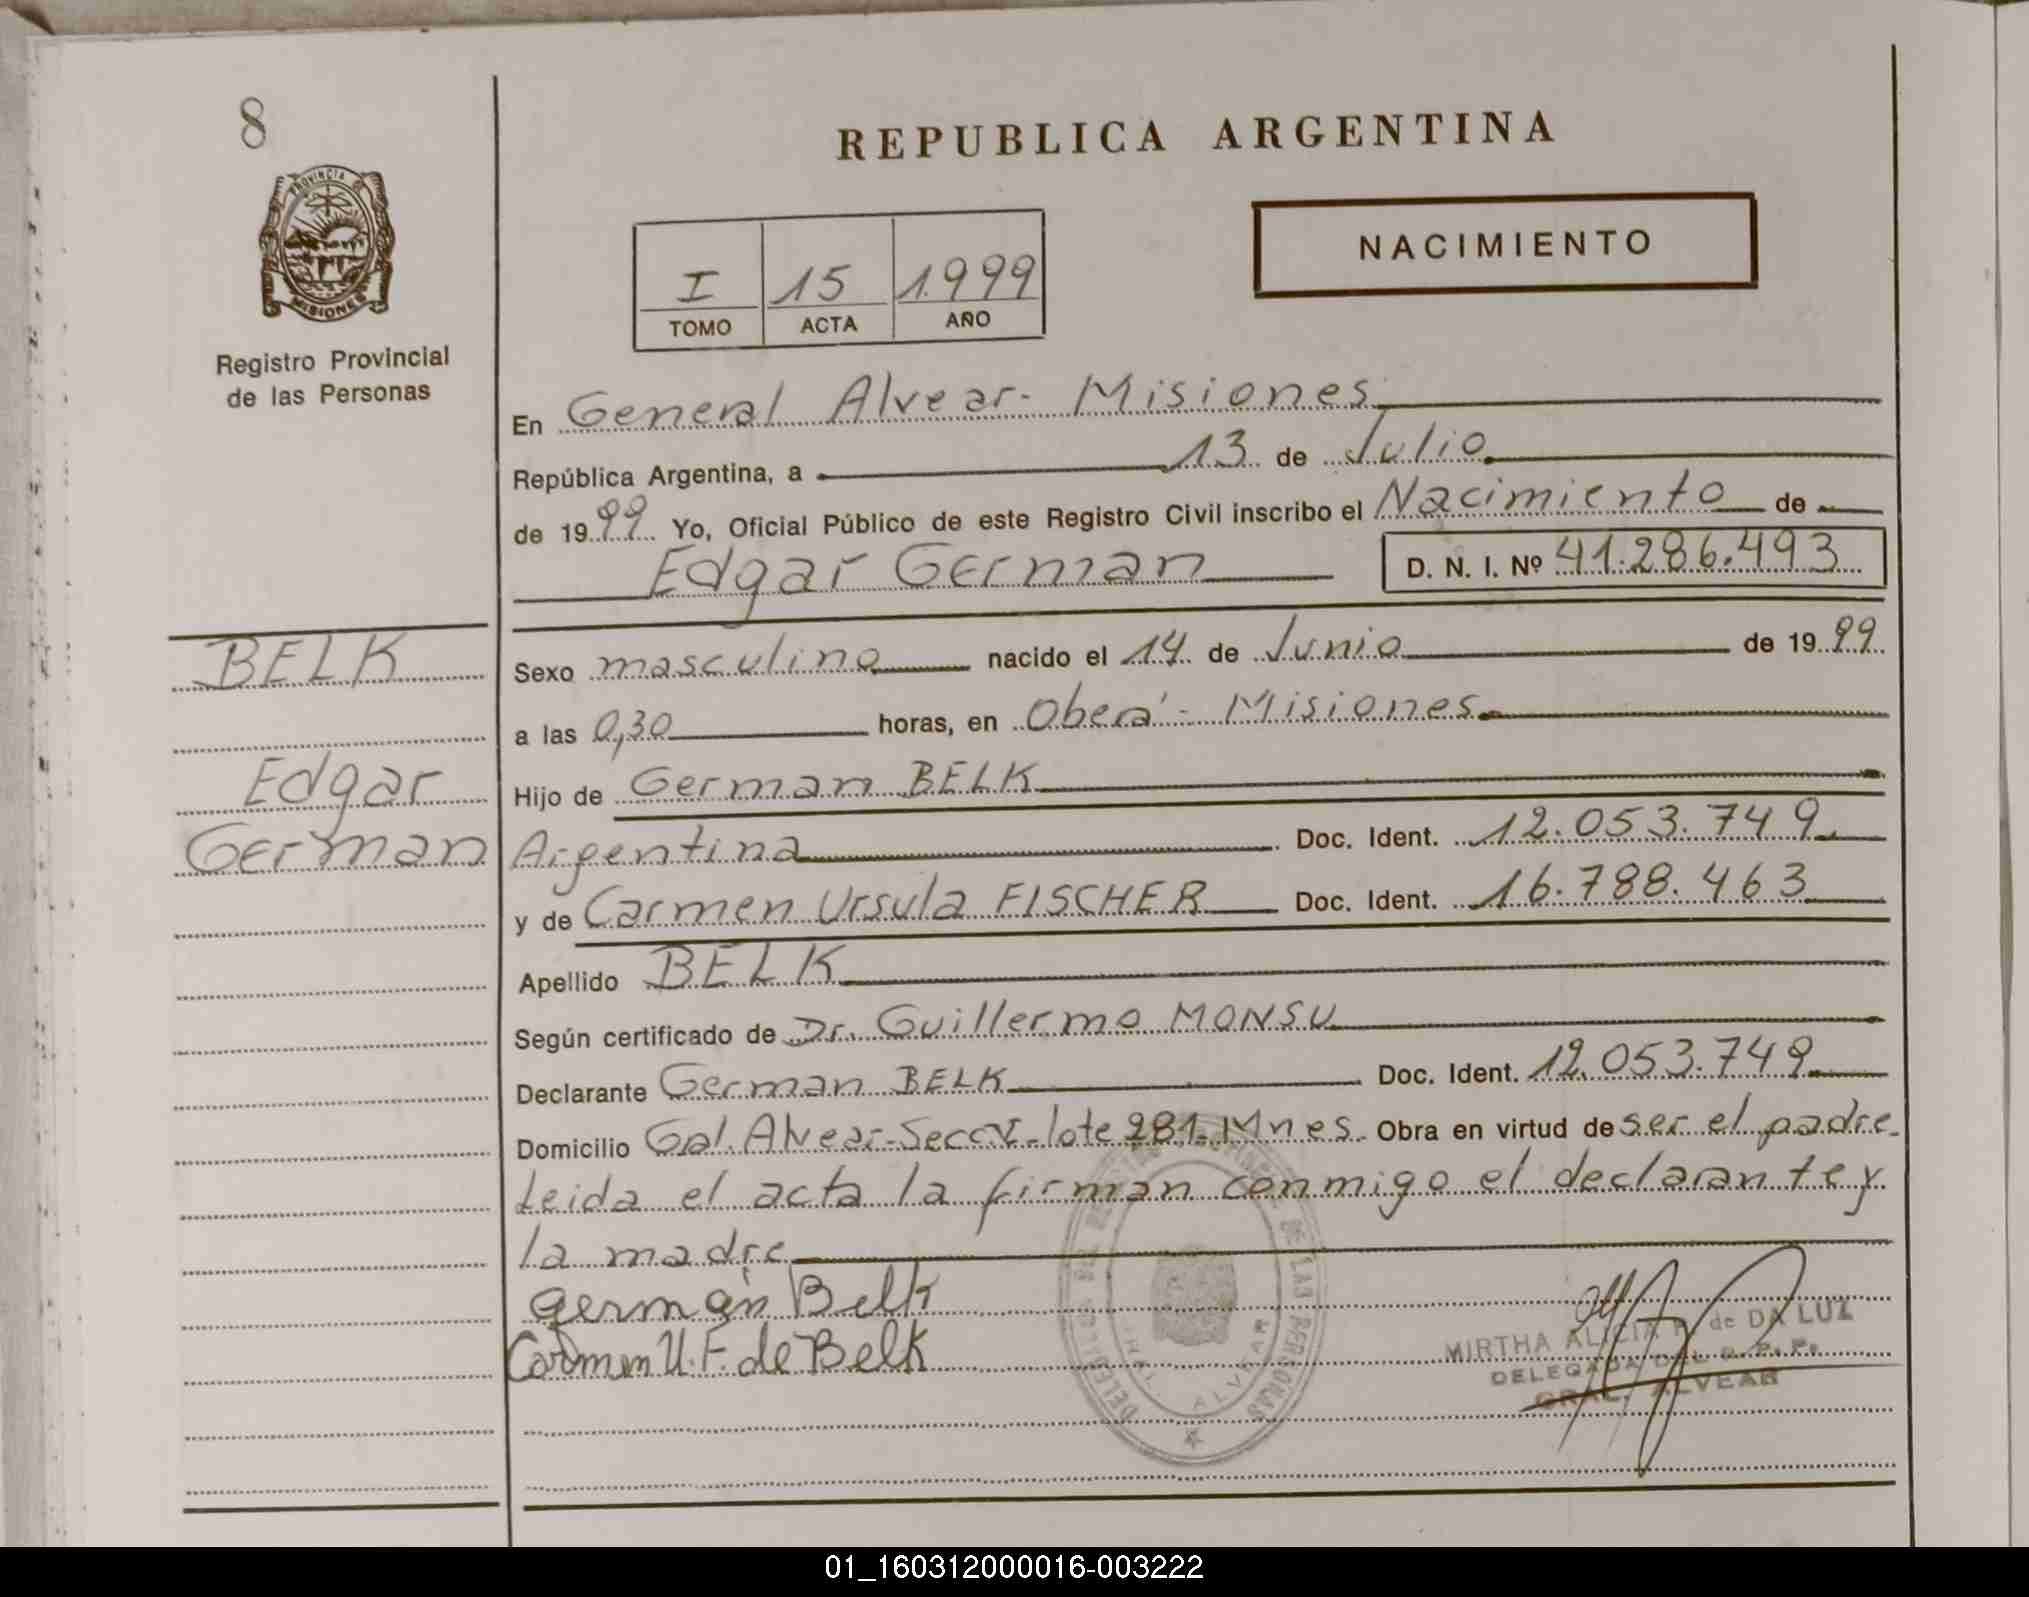 8
PROVINCIA DE
MISIONES
Registro Provincial
de las Personas
REPUBLICA ARGENTINA
NACIMIENTO
I 15 1.999
TOMO ACTA AÑO
En General Alvear - Misiones
República Argentina, a 13 de Julio
de 1999 Yo, Oficial Público de este Registro Civil inscribo el Nacimiento de
Edgar German D. N. I. Nº 41.286.493
BELK
Edgar
German
Sexo masculino nacido el 14 de Junio de 1999
a las 0,30 horas, en Oberá - Misiones
Hijo de German BELK
Argentina Doc. Ident. 12.053.749
y de Carmen Ursula FISCHER Doc. Ident. 16.788.463
Apellido BELK
Según certificado de Dr. Guillermo MONSU
Declarante German BELK Doc. Ident. 12.053.749
Domicilio Gal. Alvear - Secc V - lote 281 - Mnes. Obra en virtud de ser el padre.
Leida el acta la firman conmigo el declarante y
la madre
Germán Belk
Carmen U. F. de Belk
MIRTHA ALICIA de DA LUZ
DELEGADA DEL R. P. P.
GRAL. ALVEAR
DE LAS PERSONAS
GRAL. ALVEAR
01_160312000016-003222